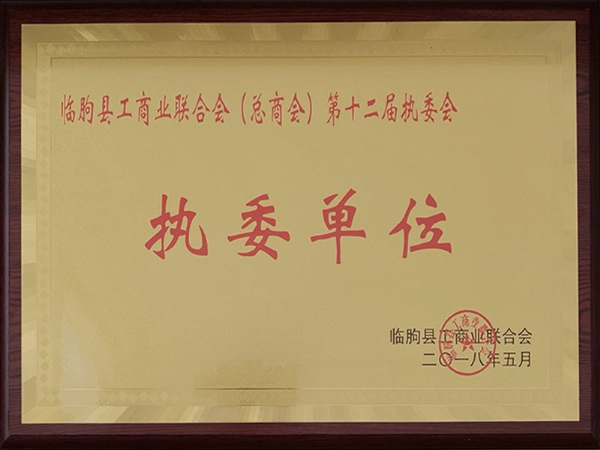 临朐县工商业联合会（总商会）第十二届执委会
执委单位
临朐县工商业联合会
二〇一八年五月